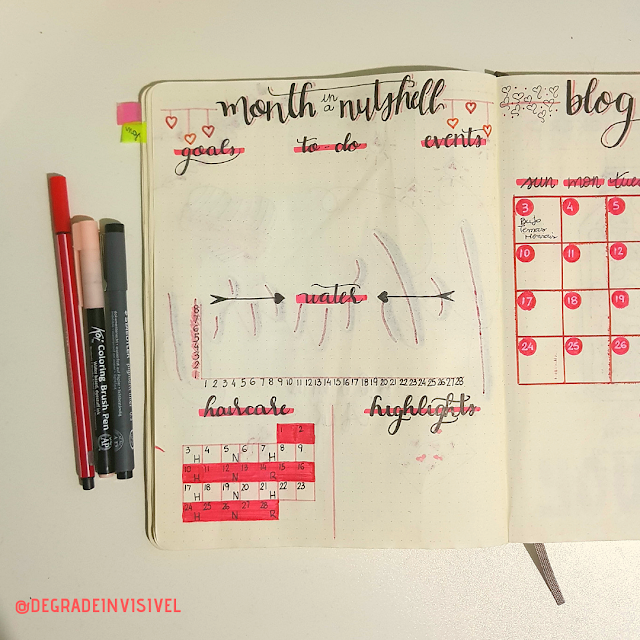 month in a nutshell
goals to-do events
water
8
7
6
5
4
3
2
1
1 2 3 4 5 6 7 8 9 10 11 12 13 14 15 16 17 18 19 20 21 22 23 24 25 26 27 28
haircare highlights
1 2
3 4 5 6 7 8 9
H N H
10 11 12 13 14 15 16
H N R
17 18 19 20 21 22 23
H N H
24 25 26 27 28
H N R
blog
sun mon tue
3 4 5
Bujo
Temas
10 11 12
17 18 19
24 25 26
Koi Coloring Brush Pen
AP
@DEGRADEINVISIVEL